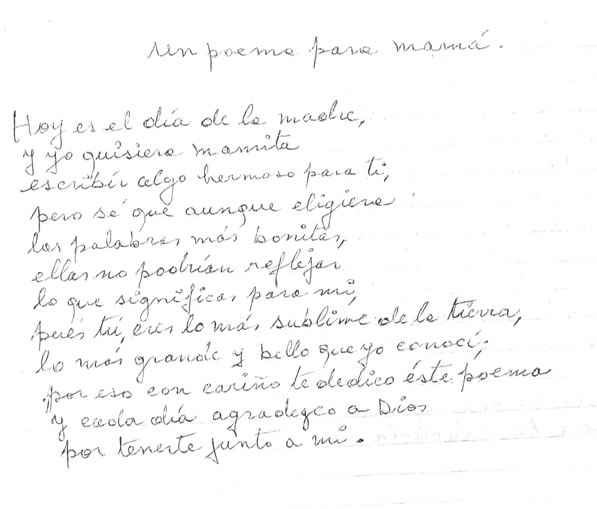 Un poema para mamá.
Hoy es el día de la madre,
y yo quisiera mamita
escribir algo hermoso para ti,
pero sé que aunque eligiera
las palabras más bonitas,
ellas no podrían reflejar
lo que significas para mi,
pués tú, eres lo más sublime de la tierra,
lo más grande y bello que yo conocí;
por eso con cariño te dedico éste poema
y cada día agradezco a Dios
por tenerte junto a mi.